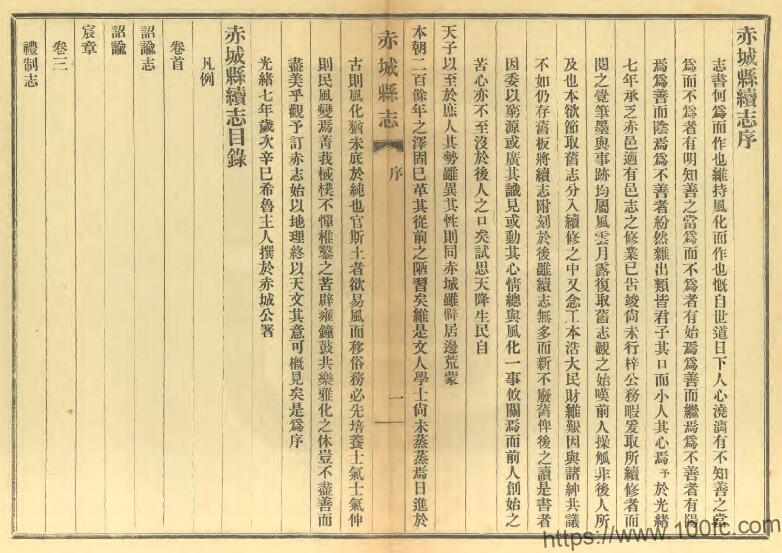 赤城縣續志序
志書何爲而作也維持風化而作也慨自世道日下人心澆漓有不知善之當
爲而不爲者有明知善之當爲而不爲者有始焉爲善而繼焉爲不善者有陽
焉爲善而陰焉爲不善者紛然雜出類皆君子其口而小人其心焉予於光緖
七年承乏赤邑適有邑志之修業已告竣尙未行梓公務暇爰取所續修者而
閱之覺筆墨與事跡均屬風雲月露復取舊志觀之始嘆前人操觚非後人所
及也本欲節取舊志分入續修之中又念工本浩大民財維艱因與諸紳共議
不如仍存舊板將續志附刻於後雖續志無多而新不廢舊俾後之讀是書者
因委以窮源或廣其識見或動其心情總與風化一事攸關焉而前人創始之
苦心亦不至沒於後人之口矣試思天降生民自
天子以至於庶人其勢雖異其性則同赤城雖僻居邊荒蒙
本朝二百餘年之澤固已革其從前之陋習矣維是文人學士尙未蒸蒸焉日進於
赤城縣志
序
一
古則風化猶未底於純也官斯土者欲易風而移俗務必先培養士氣士氣伸
則民風變焉菁莪棫樸不憚椎鑿之苦辟雍鐘鼓共樂雅化之休豈不盡善而
盡美乎觀予訂赤志始以地理終以天文其意可概見矣是爲序
光緖七年歲次辛巳希魯主人撰於赤城公署
赤城縣續志目錄
凡例
卷首
詔諭志
詔諭
宸章
卷三
禮制志
https://www.100fc.com